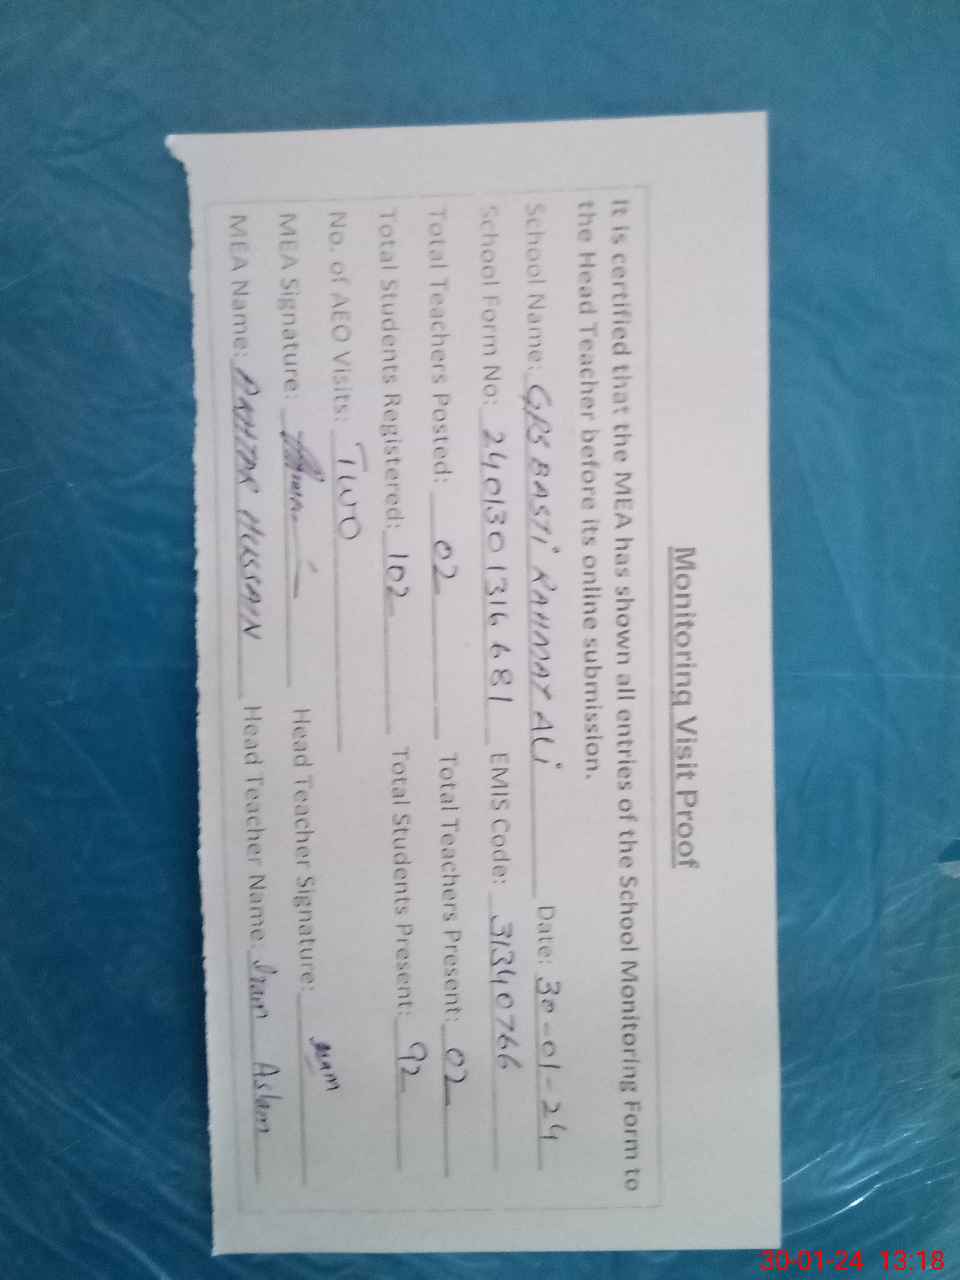 Monitoring Visit Proof
It is certified that the MEA has shown all entries of the School Monitoring Form to
the Head Teacher before its online submission.
School Name: GPS BASTI RAHMAT ALI Date: 30-01-24
School Form No: 2401301316681 EMIS Code: 31340766
Total Teachers Posted: 02 Total Teachers Present: 02
Total Students Registered: 102 Total Students Present: 92
No. of AEO Visits: Two
MEA Signature: Head Teacher Signature:
MEA Name: AKHTAR HUSSAIN Head Teacher Name: Iram Aslam
30-01-24 13:18